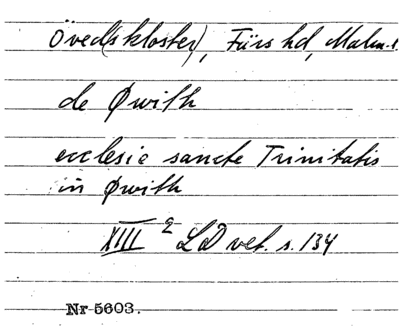 Öved(skloster), Färs hd, Malm. l.
de Øwith
ecclesie sancte Trinitatis
in Øwith
XIII 2 LD vet. s. 134
Nr 5603.